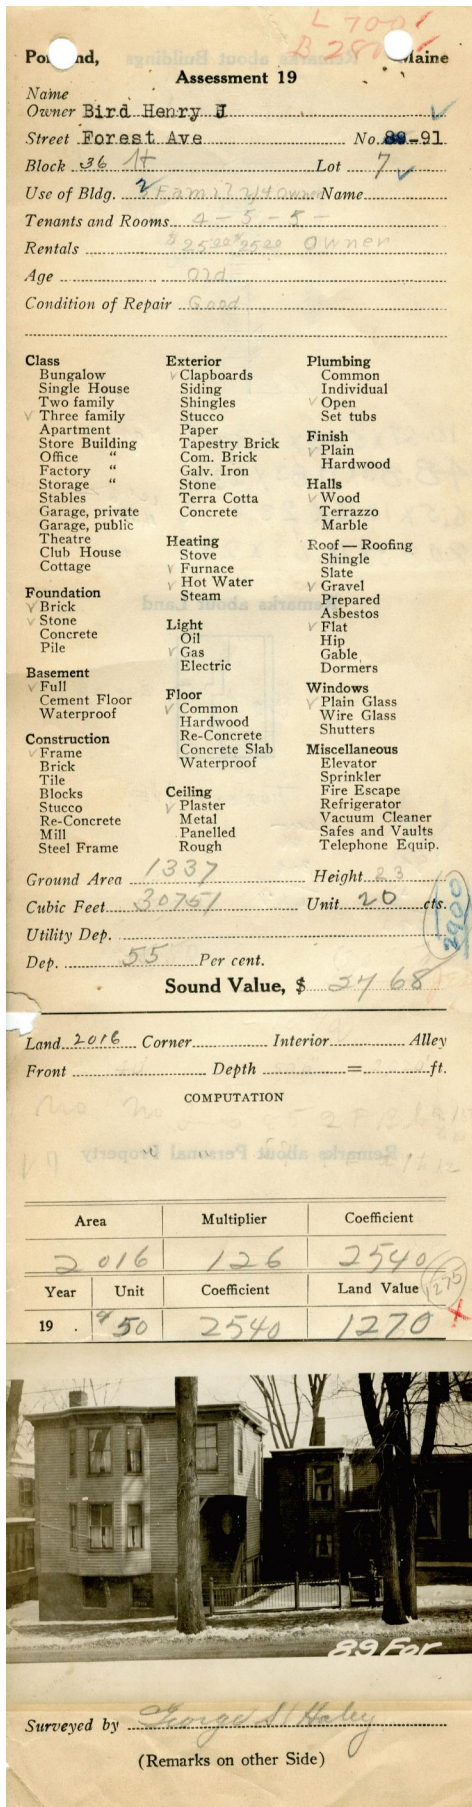 L 7001
Portland, Maine
Assessment 19
Name
Owner Bird Henry J
Street Forest Ave No. 89-91
Block 36 H Lot 7
Use of Bldg. 2 Family & owner Name
Tenants and Rooms 4 - 5 - 5 -
Rentals $25.00 $25.00 Owner
Age Old
Condition of Repair Good
Class
Bungalow
Single House
Two family
✓ Three family
Apartment
Store Building
Office "
Factory "
Storage "
Stables
Garage, private
Garage, public
Theatre
Club House
Cottage
Foundation
✓ Brick
✓ Stone
Concrete
Pile
Basement
✓ Full
Cement Floor
Waterproof
Construction
✓ Frame
Brick
Tile
Blocks
Stucco
Re-Concrete
Mill
Steel Frame
Exterior
✓ Clapboards
Siding
Shingles
Stucco
Paper
Tapestry Brick
Com. Brick
Galv. Iron
Stone
Terra Cotta
Concrete
Heating
Stove
✓ Furnace
✓ Hot Water
Steam
Light
Oil
✓ Gas
Electric
Floor
✓ Common
Hardwood
Re-Concrete
Concrete Slab
Waterproof
Ceiling
✓ Plaster
Metal
Panelled
Rough
Plumbing
Common
Individual
✓ Open
Set tubs
Finish
✓ Plain
Hardwood
Halls
✓ Wood
Terrazzo
Marble
Roof — Roofing
Shingle
Slate
✓ Gravel
Prepared
Asbestos
✓ Flat
Hip
Gable
Dormers
Windows
✓ Plain Glass
Wire Glass
Shutters
Miscellaneous
Elevator
Sprinkler
Fire Escape
Refrigerator
Vacuum Cleaner
Safes and Vaults
Telephone Equip.
Ground Area 1337 Height 23
Cubic Feet 30751 Unit 20 cts.
2900
Utility Dep.
Dep. 55 Per cent.
Sound Value, $ 2768
Land 2016 Corner Interior Alley
Front Depth = ft.
COMPUTATION
Area Multiplier Coefficient
2016 126 2540
Year Unit Coefficient Land Value 1275
19 . $50 2540 1270 x
89 For
Surveyed by George S Haley
(Remarks on other Side)